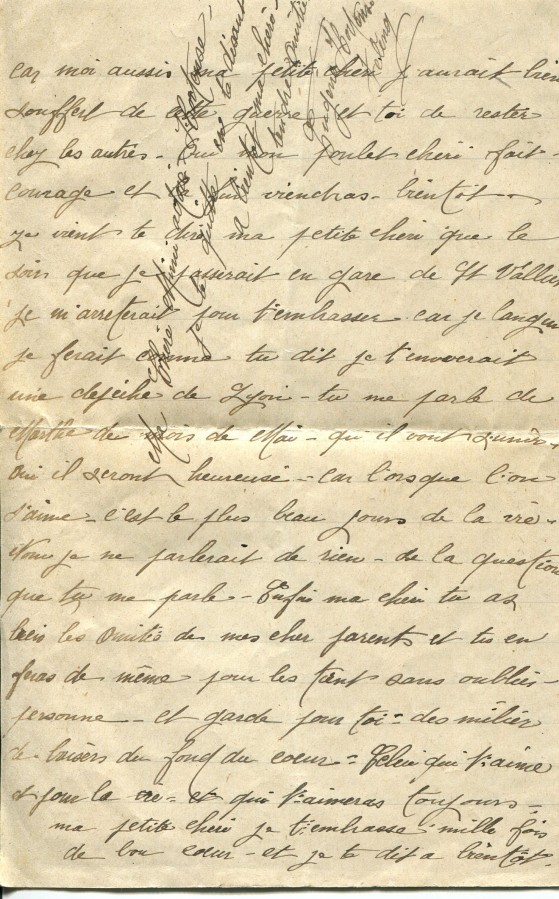 Car moi aussi ma petite cheri j'aurait bien
souffert de cette guerre et toi de rester
chez les autres - Oui mon poulet chéri fait
courage et la fin viendras - bientôt -
Je vient te dire ma petite cheri que le
soir que je passerait en gare de St Vallier
je m'arreterait pour t'embrasser car je langui
je ferait comme tu dit je t'enverait
une depêche de Lyon - tu me parle de
Marthe du mois de Mai - qu'il vont s'unir -
Oui il seront heureuse - car lorsque l'on
s'aime - c'est le plus beau jours de la vie -
Non je ne parlerait de rien - de la question
que tu me parle - Enfin ma cheri tu as
bien les amitiés de mes cher parents et tu en
feras de même pour les tient sans oublier
personne - et garde pour toi - des milier
de baisers du fond du coeur - Celui qui t'aime
et pour la vie - et qui t'aimeras toujours -
ma petite cheri je t'embrasse mille fois
de bon coeur - et je te dit a bientôt -
Ma chère
Je te quitte en te disant
a bientôt ma cheri
tendre amitié